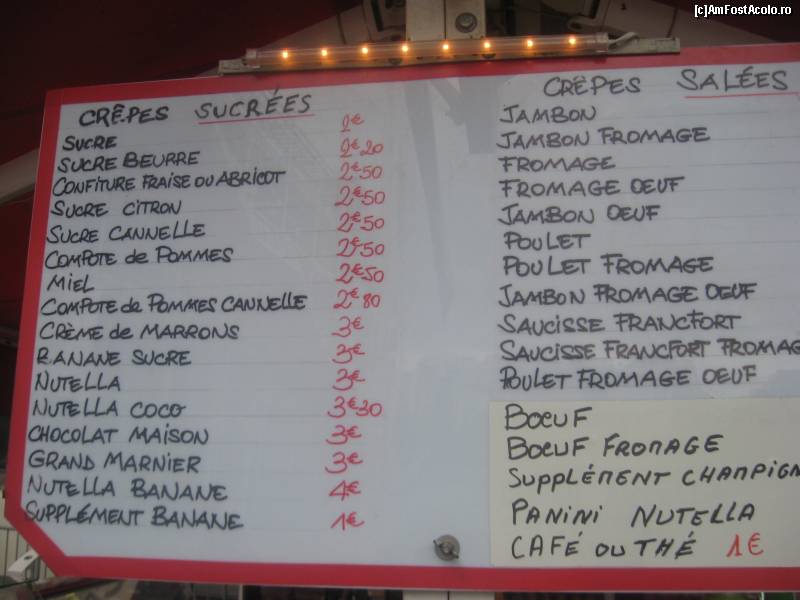 [c]AmFostAcolo.ro
CRÊPES SUCRÉES
SUCRE 2€
SUCRE BEURRE 2€20
CONFITURE FRAISE OU ABRICOT 2€50
SUCRE CITRON 2€50
SUCRE CANNELLE 2€50
COMPOTE de POMMES 2€50
MIEL 2€50
COMPOTE de POMMES CANNELLE 2€80
CRÈME de MARRONS 3€
BANANE SUCRE 3€
NUTELLA 3€
NUTELLA COCO 3€30
CHOCOLAT MAISON 3€
GRAND MARNIER 3€
NUTELLA BANANE 4€
SUPPLÉMENT BANANE 1€
CRÊPES SALÉES
JAMBON
JAMBON FROMAGE
FROMAGE
FROMAGE OEUF
JAMBON OEUF
POULET
POULET FROMAGE
JAMBON FROMAGE OEUF
SAUCISSE FRANCFORT
SAUCISSE FRANCFORT FROMAG
POULET FROMAGE OEUF
BOEUF
BOEUF FROMAGE
SUPPLÉMENT CHAMPIGN
PANINI NUTELLA
CAFÉ OU THÉ 1€